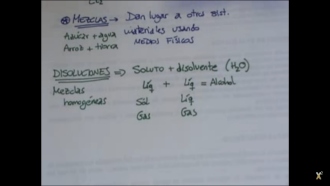 ⊛ MEZCLAS → Dan lugar a otros sist.
Azúcar + agua materiales usando
Arroz + tierra MEDIOS FÍSICOS
DISOLUCIONES ⇒ SOLUTO + disolvente (H₂O)
Mezclas Líq + Líq = Alcohol
homogéneas Sól Líq
Gas Gas